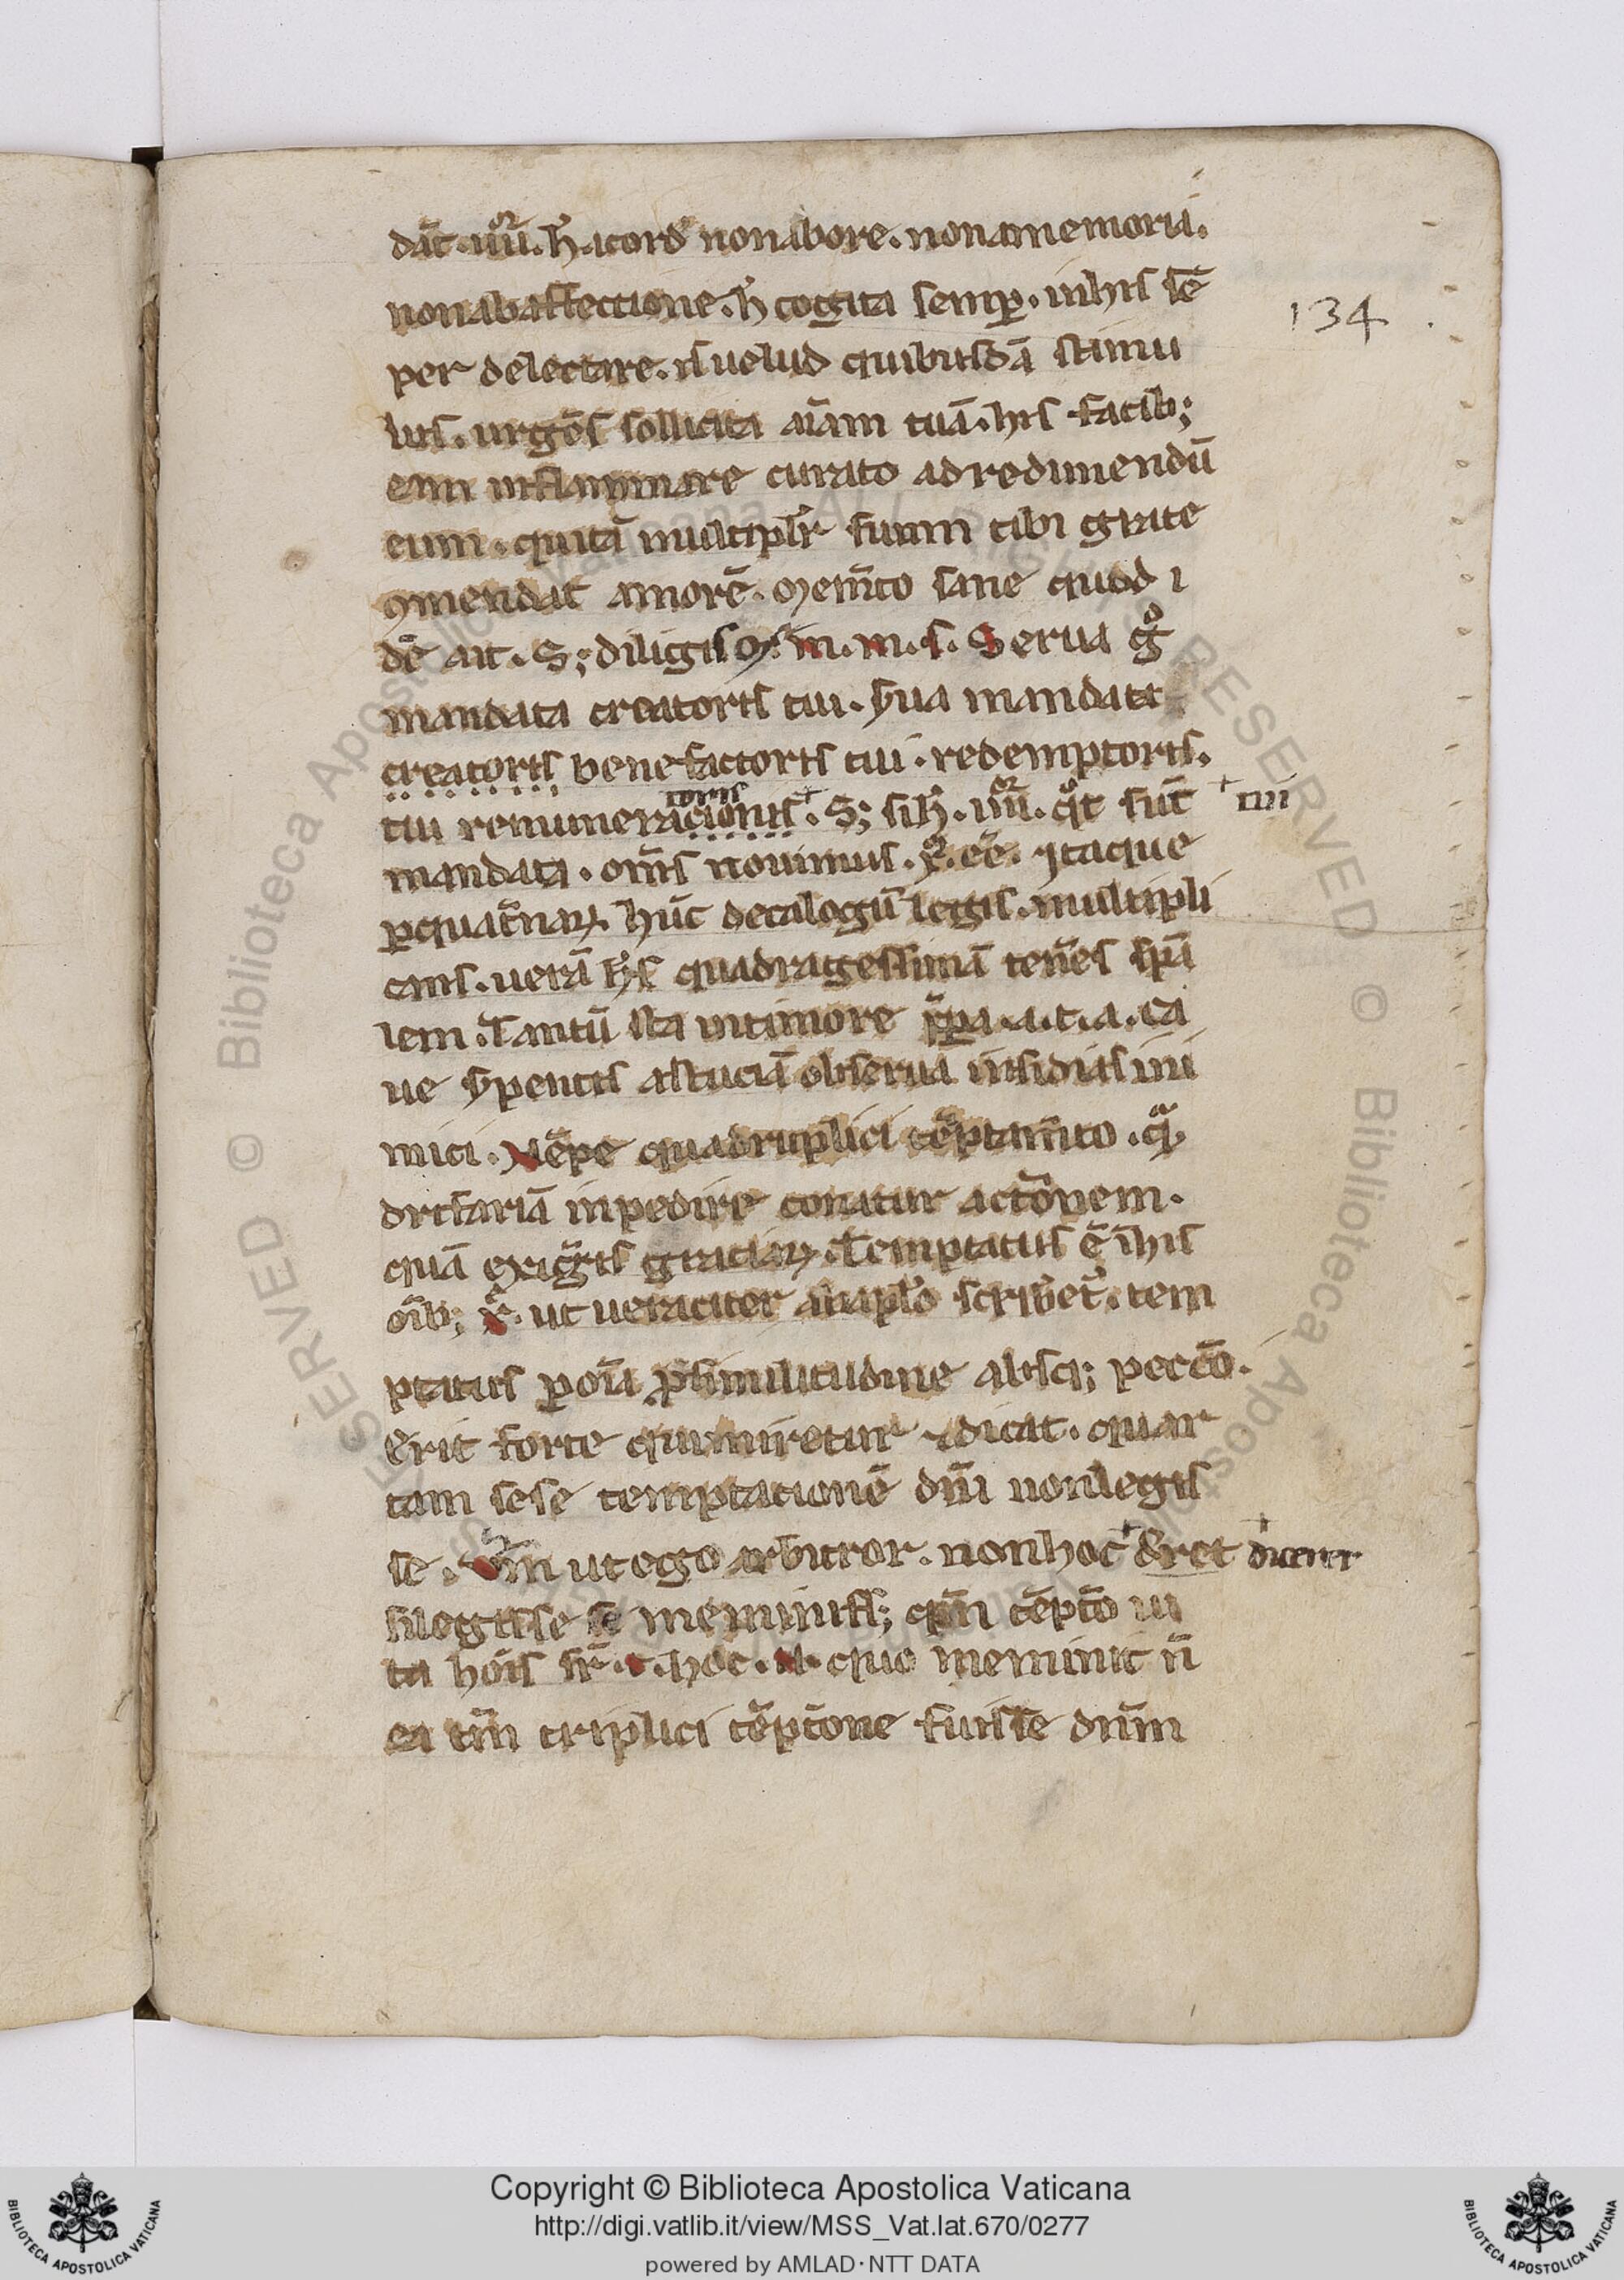 dāt · iiii͛or. h̄. a cord̾ non ab ore. non a memoria.
non ab affectione. h̄ cogita semp̱. in his sē
per delectare. ħ uelud quibusdā stimu
lis. urgēs sollicita aīam tuā. his facib;
eam inflammare curato ad redimendū
eum. qui tā multiplr̄ suum tibi grate
ꝯmendat amorē. Mem̄to sane quod i
dē ait. S; diligis me. m. m. s. Serua gͦ
mandata creatoris tui. s̾ua mandata
creatoris benefactoris tui. redemptoris.
tui remuneracionis toris +. S; si h̄. iiii͛or. qͦt sūt + tui
mandata. om̄s nouimus. x. eē. Itaque
ꝑ quat̾narꝝ hūc decalogū legis. multipli
cans. uerā
quadragessimā tenēs spā
lem. Tantū sta in timore
p̄pa. a. t. a. ca
ue s̾pentis astuciā obserua insidias ini
mici. Nēpe quadruplici tēptam̄to. qͣ
drifariā inpedire conatur actōnem.
quā exigitis graciarꝝ. Temptatus ē ī his
oīb; x̄. ut ueraciter ab aplō scribet̾. tem
ptatus ꝑ oīa ꝓ similitudine absq; peccō.
Erit forte qui miretur ⁊ dicat. quar
tam sese temptationē dn̄i non legis
se. Vm̄ ut ego arbitror. non hoc + d̾ret + diceret
si legisse se meminiss; qm̄ tēptō ui
ta hoīs sr̄. t. hoc. N. quo meminit n̄
ea tm̄ triplici tēptōne fuisse dn̄m
134
Copyright © Biblioteca Apostolica Vaticana
http://digi.vatlib.it/view/MSS_Vat.lat.670/0277
powered by AMLAD·NTT DATA
BIBLIOTECA APOSTOLICA VATICANA
BIBLIOTECA APOSTOLICA VATICANA